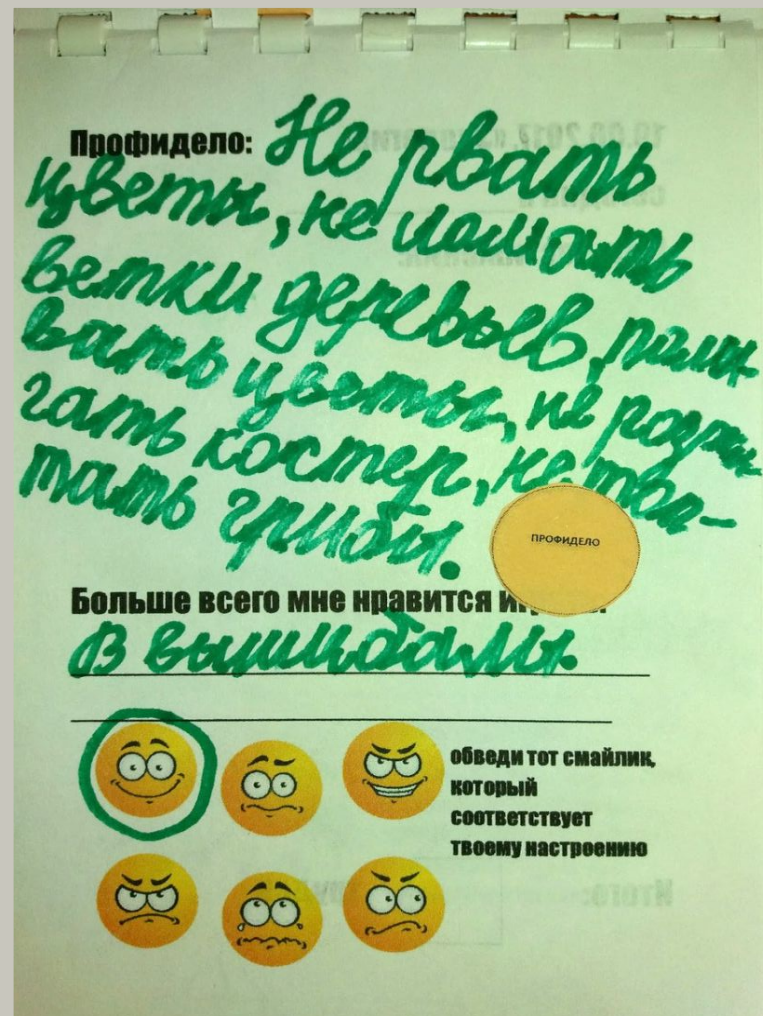 Профидело: Не рвать
цветы, не ломать
ветки деревьев, поли-
вать цветы, не разжи-
гать костер, не топ-
тать грибы.
ПРОФИДЕЛО
Больше всего мне нравится
В вышибалы.
обведи тот смайлик,
который
соответствует
твоему настроению